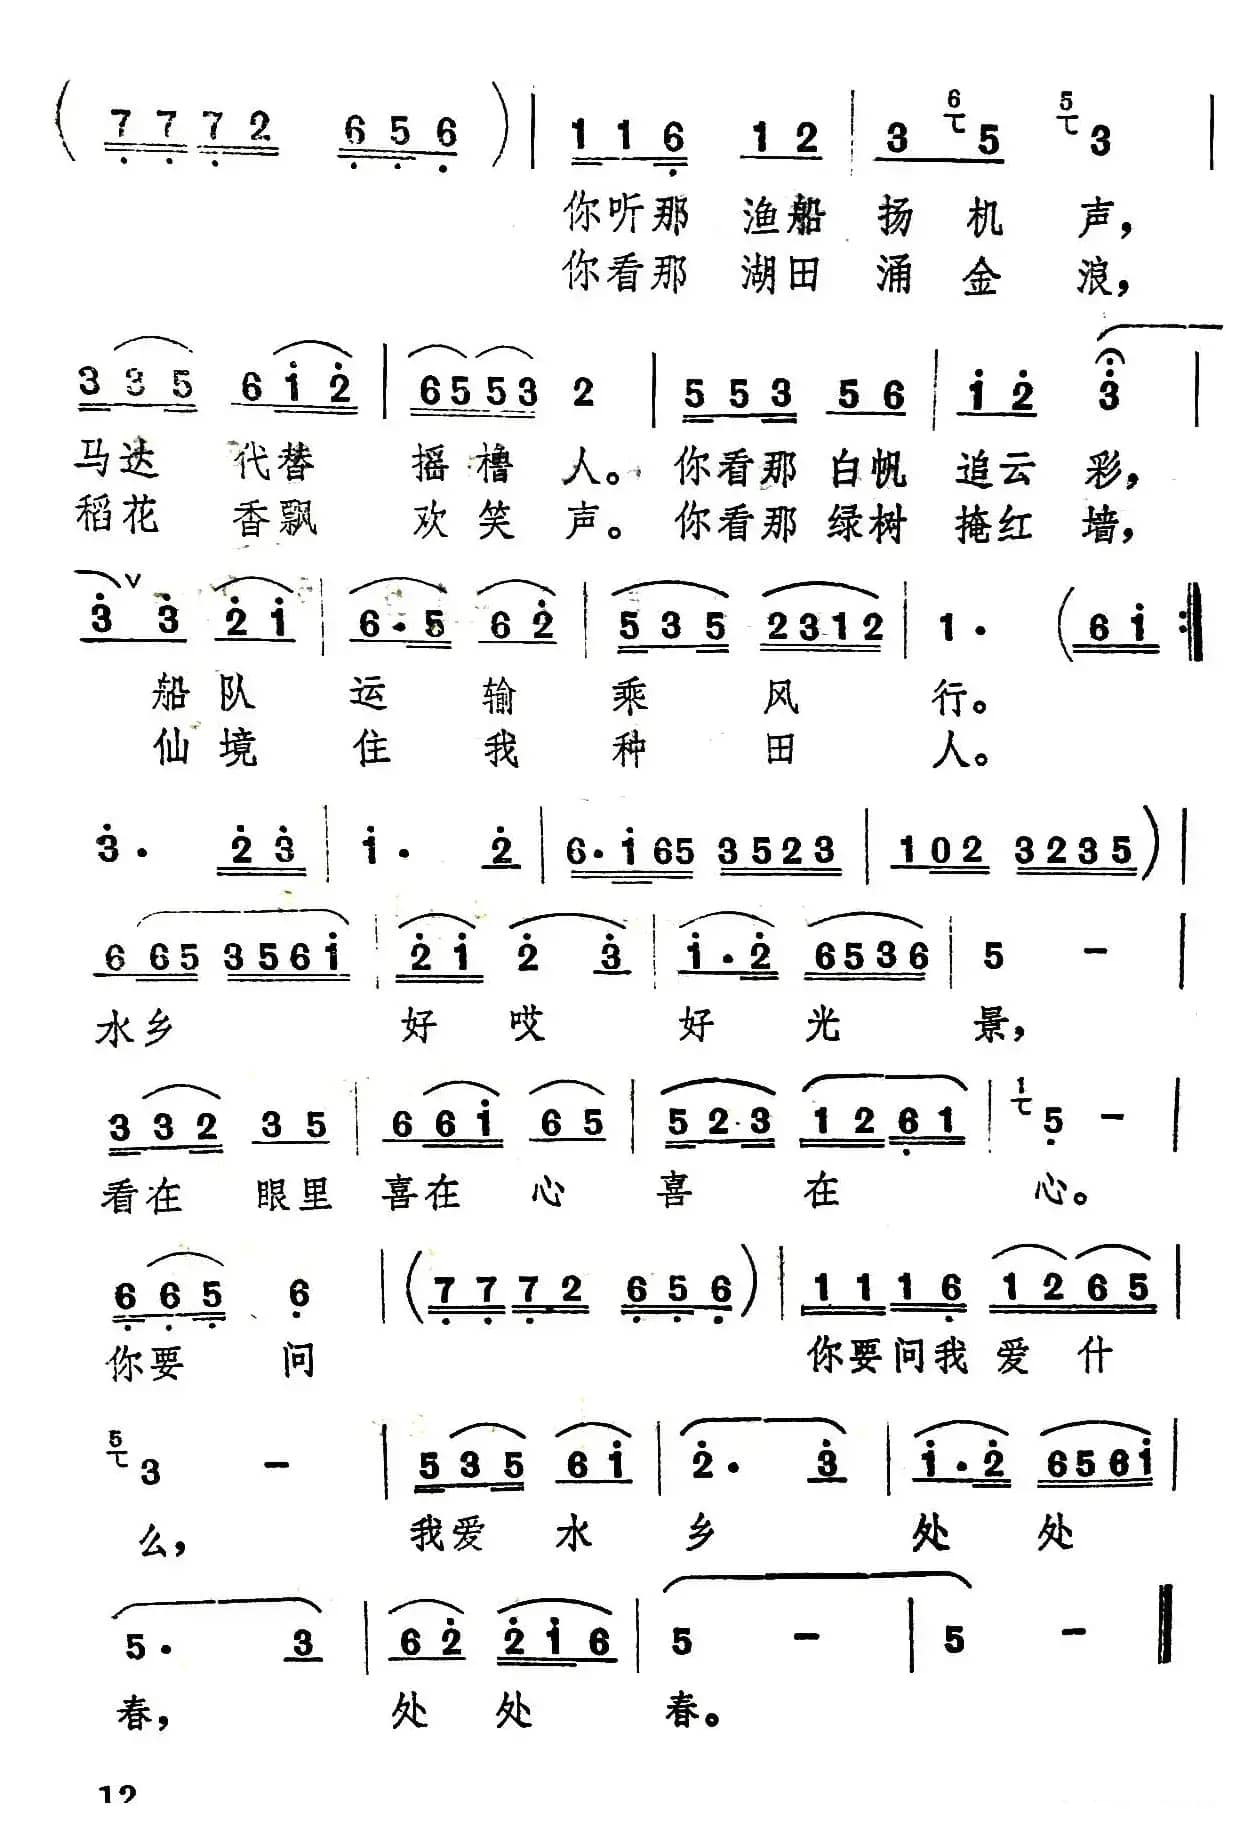 ( 7 7 7 2 6 5 6 ) | 1 1 6 1 2 | 3 6 5 5 3 |
你听那 渔船 扬 机 声，
你看那 湖田 涌 金 浪，
3 3 5 6 1 2 | 6 5 5 3 2 | 5 5 3 5 6 | 1 2 3 |
马达 代替 摇 橹 人。 你看那 白帆 追云 彩，
稻花 香飘 欢 笑 声。 你看那 绿树 掩红 墙，
3 3 2 1 | 6 · 5 6 2 | 5 3 5 2 3 1 2 | 1 · ( 6 1 :|
船 队 运 输 乘 风 行。
仙 境 住 我 种 田 人。
3 · 2 3 | 1 · 2 | 6 · 1 6 5 3 5 2 3 | 1 0 2 3 2 3 5 ) |
6 6 5 3 5 6 1 | 2 1 2 3 | 1 · 2 6 5 3 6 | 5 - |
水乡 好 哎 好 光 景，
3 3 2 3 5 | 6 6 1 6 5 | 5 2 · 3 1 2 6 1 | 1 5 - |
看在 眼里 喜在 心 喜 在 心。
6 6 5 6 | ( 7 7 7 2 6 5 6 ) | 1 1 1 6 1 2 6 5 |
你要 问 你要问我 爱 什
5 3 - | 5 3 5 6 1 | 2 · 3 | 1 · 2 6 5 6 1 |
么， 我爱 水 乡 处 处
5 · 3 | 6 2 2 1 6 | 5 - | 5 - ‖
春， 处 处 春。
12